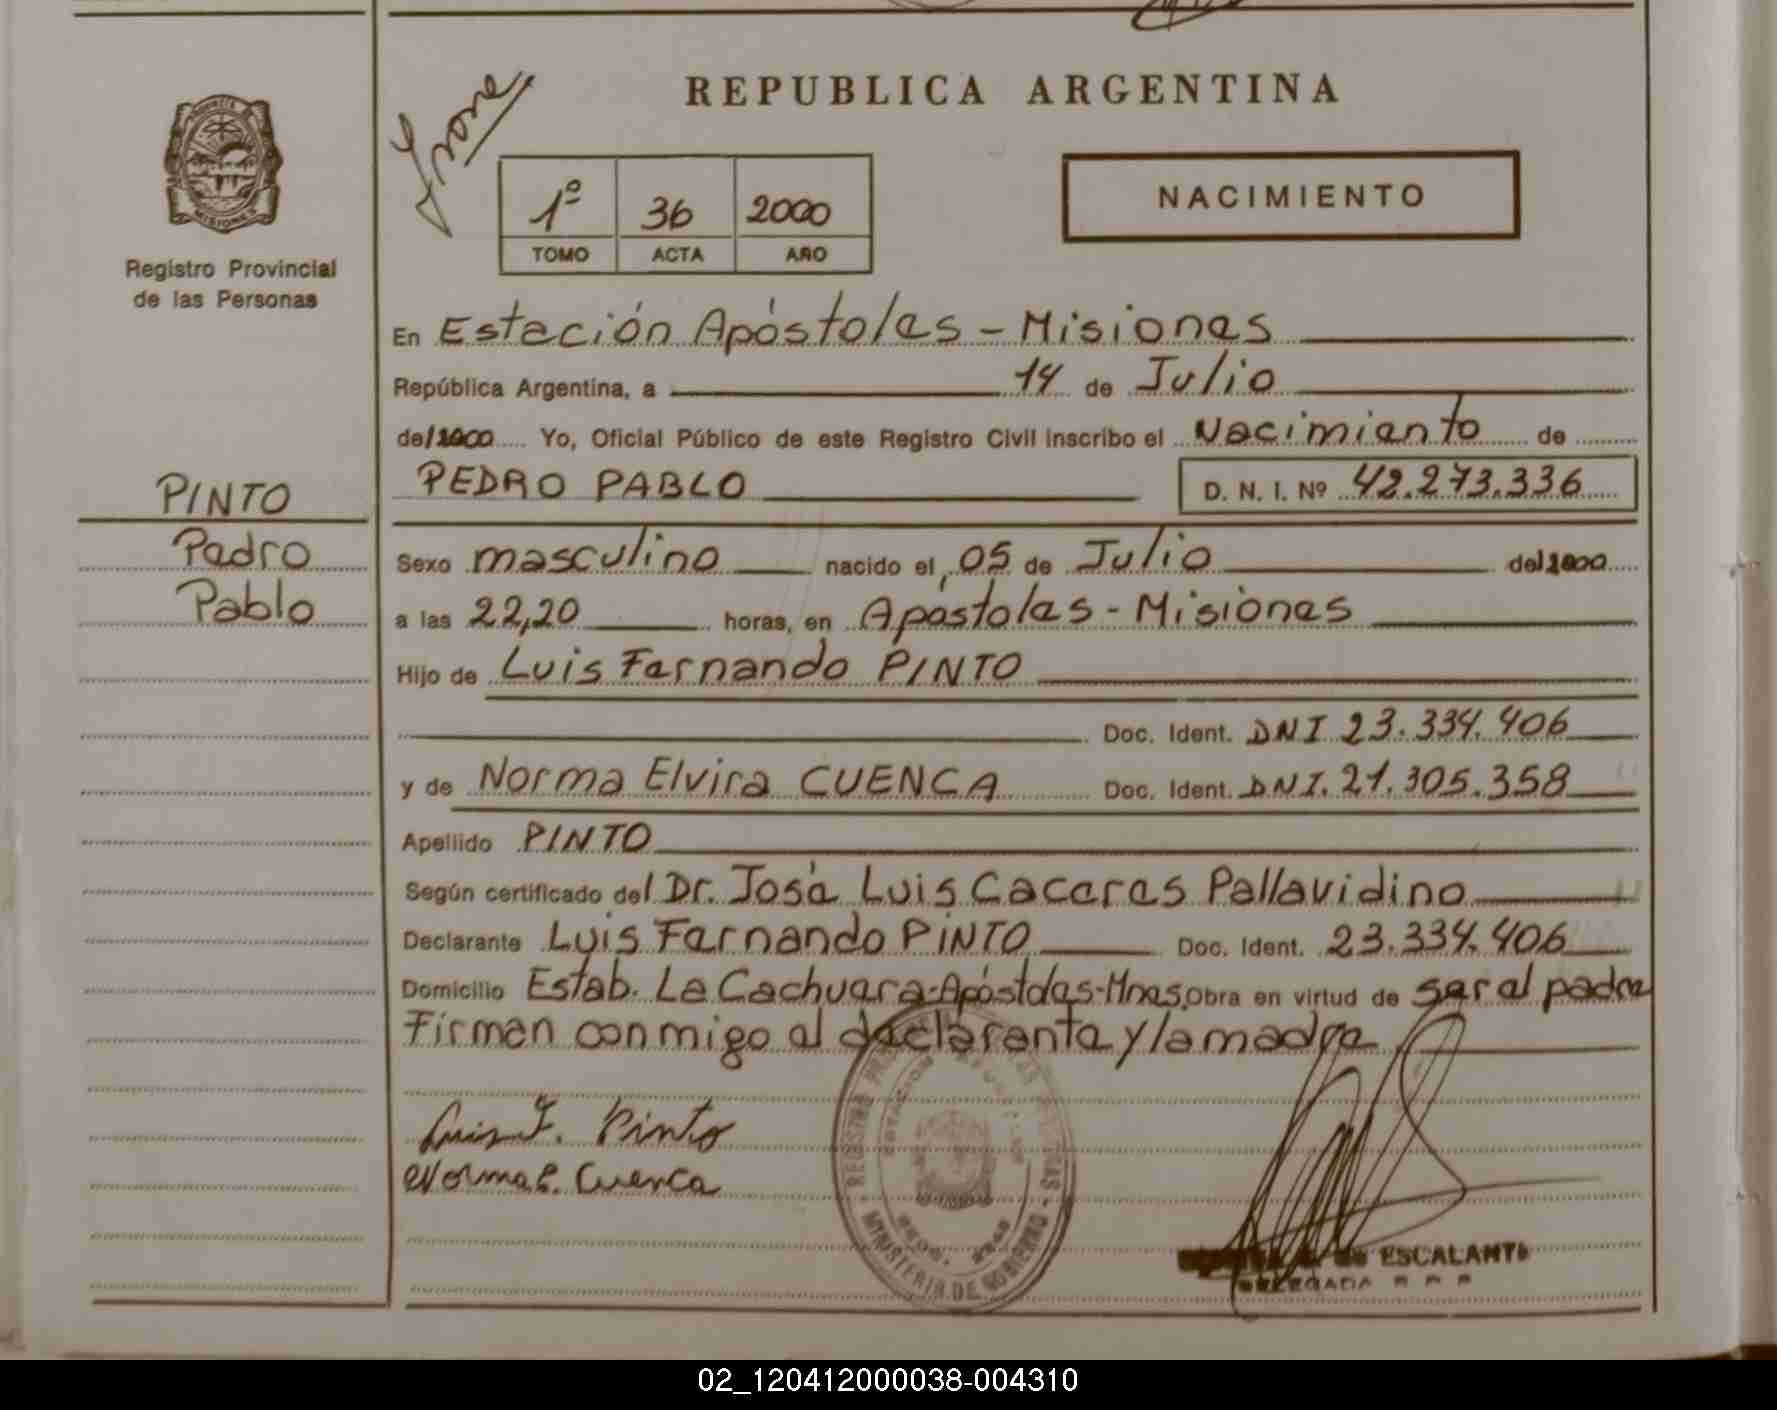 REPUBLICA ARGENTINA
1º 36 2000
TOMO ACTA AÑO
NACIMIENTO
MISIONES
Registro Provincial
de las Personas
En Estación Apóstoles - Misiones
República Argentina, a 14 de Julio
del 2000 Yo, Oficial Público de este Registro Civil inscribo el Nacimiento de
PINTO
Pedro
Pablo
PEDRO PABLO D. N. I. Nº 42.273.336
Sexo masculino nacido el, 05 de Julio del 2000
a las 22,20 horas, en Apóstoles - Misiones
Hijo de Luis Fernando PINTO
Doc. Ident. DNI 23.334.406
y de Norma Elvira CUENCA Doc. Ident. DNI. 21.305.358
Apellido PINTO
Según certificado del Dr. José Luis Caceres Pallavidino
Declarante Luis Fernando PINTO Doc. Ident. 23.334.406
Domicilio Estab. La Cachuera-Apóstoles-Mnes. Obra en virtud de ser el padre
Firman conmigo el declarante y la madre
Luis F. Pinto
Norma E. Cuenca
REGISTRO
MINISTERIO DE GOBIERNO
ESCALANTE
DELEGADA R P P
02_120412000038-004310